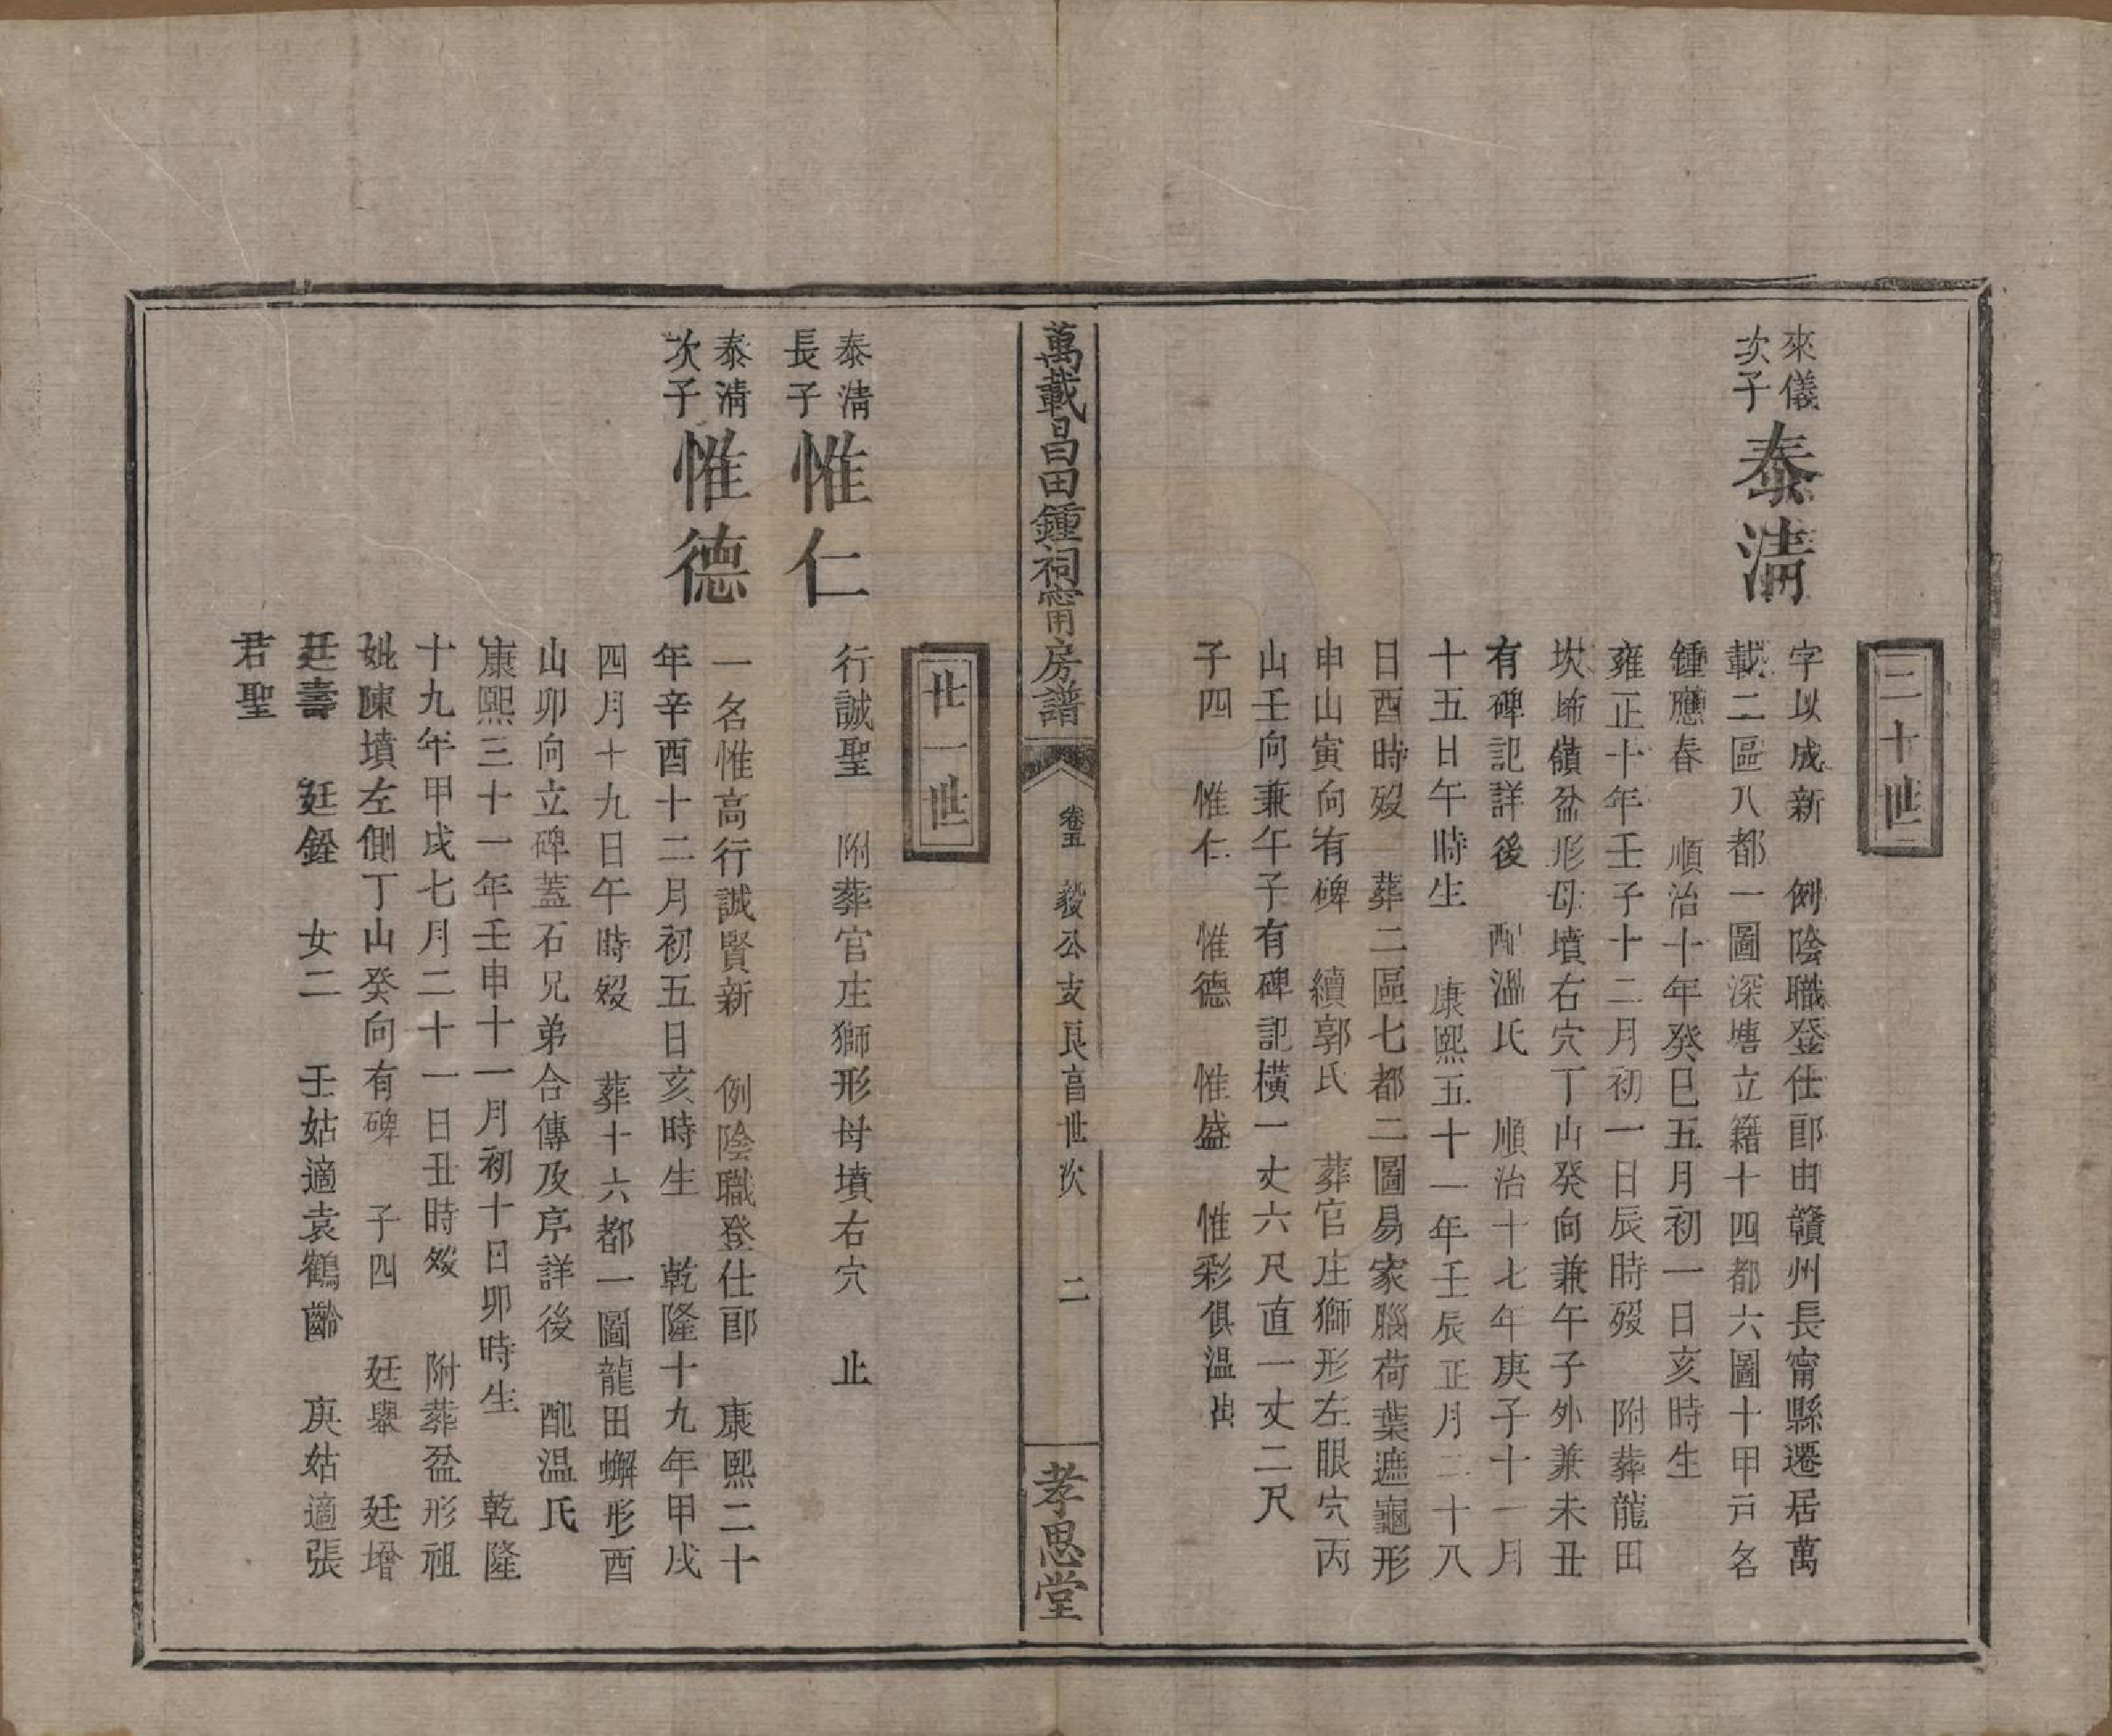 二十世
來儀
次子
泰清
字以成新　例陰職登仕郎由贛州長甯縣遷居萬
載二區八都一圖深塘立籍十四都六圖十甲戸名
鍾應春　順治十年癸巳五月初一日亥時生
雍正十年壬子十二月初一日辰時歿　附葬龍田
坎㘵嶺盆形母墳右穴丁山癸向兼午子外兼未丑
有碑記詳後　配溫氏　順治十七年庚子十一月
十五日午時生　康熙五十一年壬辰正月二十八
日酉時歿　葬二區七都二圖易家腦荷葉遮龜形
申山寅向有碑　續郭氏　葬官庄獅形左眼穴丙
山壬向兼午子有碑記橫一丈六尺直一丈二尺
子四　惟仁　惟德　惟盛　惟彩俱溫出
萬載昌田鍾祠甯房譜
卷五　毅公支良富世次　二
孝思堂
廿一世
泰淸
長子
惟仁
行誠聖　附葬官庄獅形母墳右穴　止
泰淸
次子
惟德
一名惟高行誠賢新　例陰職登仕郎　康熙二十
年辛酉十二月初五日亥時生　乾隆十九年甲戌
四月十九日午時歿　葬十六都一圖龍田蠏形酉
山卯向立碑蓋石兄弟合傳及序詳後　配温氏
康熙三十一年壬申十一月初十日卯時生　乾隆
十九年甲戌七月二十一日丑時歿　附葬盆形祖
妣陳墳左側丁山癸向有碑　子四　廷舉　廷增
廷壽　廷銓　女二　壬姑適袁鶴齡　庚姑適張
君聖